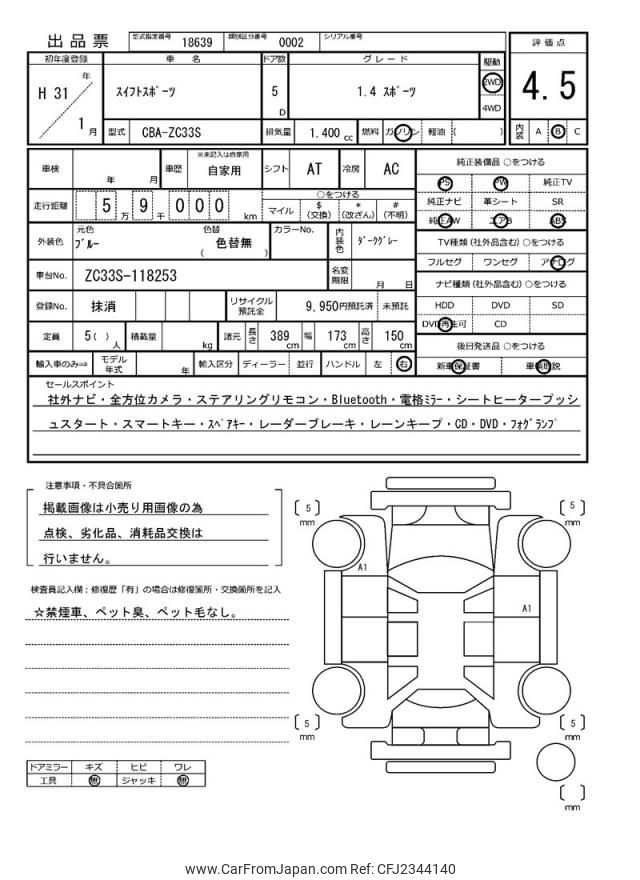 出品票
型式指定番号 18639 類別区分番号 0002 シリアル番号
評価点
初年度登録 車名 ドア数 グレード 駆動
H 31 年 スイフトスポーツ 5 D 1.4 スポーツ 2WD
4WD
4.5
1 月 型式 CBA-ZC33S 排気量 1.400 cc 燃料 ガソリン 軽油 ( )
内装 A B C
車検 年 月 車歴 ※未記入は自家用 自家用 シフト AT 冷房 AC
純正装備品 ○をつける
PS PW 純正TV
走行距離 5 万 9 千 0 0 0 km
○をつける
マイル $(交換) *(改ざん) #(不明)
純正ナビ 革シート SR
純正AW エアB ABS
外装色 元色 ブルー 色替 ( 色替無 カラーNo. 内装色 ダークグレー
TV種類(社外品含む)○をつける
フルセグ ワンセグ アナログ
車台No. ZC33S-118253 名変期限 月 日
ナビ種類(社外品含む)○をつける
登録No. 抹消 リサイクル預託金 9,950円預託済 未預託
HDD DVD SD
DVD再生可 CD
定員 5( )人 積載量 kg 諸元 長さ 389 cm 幅 173 cm 高さ 150 cm
後日発送品 ○をつける
輸入車のみ⇒ モデル年式 年 輸入区分 ディーラー 並行 ハンドル 左 右
新車保証書 車輌取説
セールスポイント
社外ナビ・全方位カメラ・ステアリングリモコン・Bluetooth・電格ミラー・シートヒータープッシ
ュスタート・スマートキー・スペアキー・レーダーブレーキ・レーンキープ・CD・DVD・フォグランプ
注意事項・不具合箇所
掲載画像は小売り用画像の為
点検、劣化品、消耗品交換は
行いません。
検査員記入欄:修復歴「有」の場合は修復箇所・交換箇所を記入
☆禁煙車、ペット臭、ペット毛なし。
[ 5 ] mm
[ 5 ] mm
A1
A1
[ 5 ] mm
[ 5 ] mm
[ ] mm
ドアミラー キズ ヒビ ワレ
工具 無 ジャッキ 無
www.CarFromJapan.com Ref: CFJ2344140